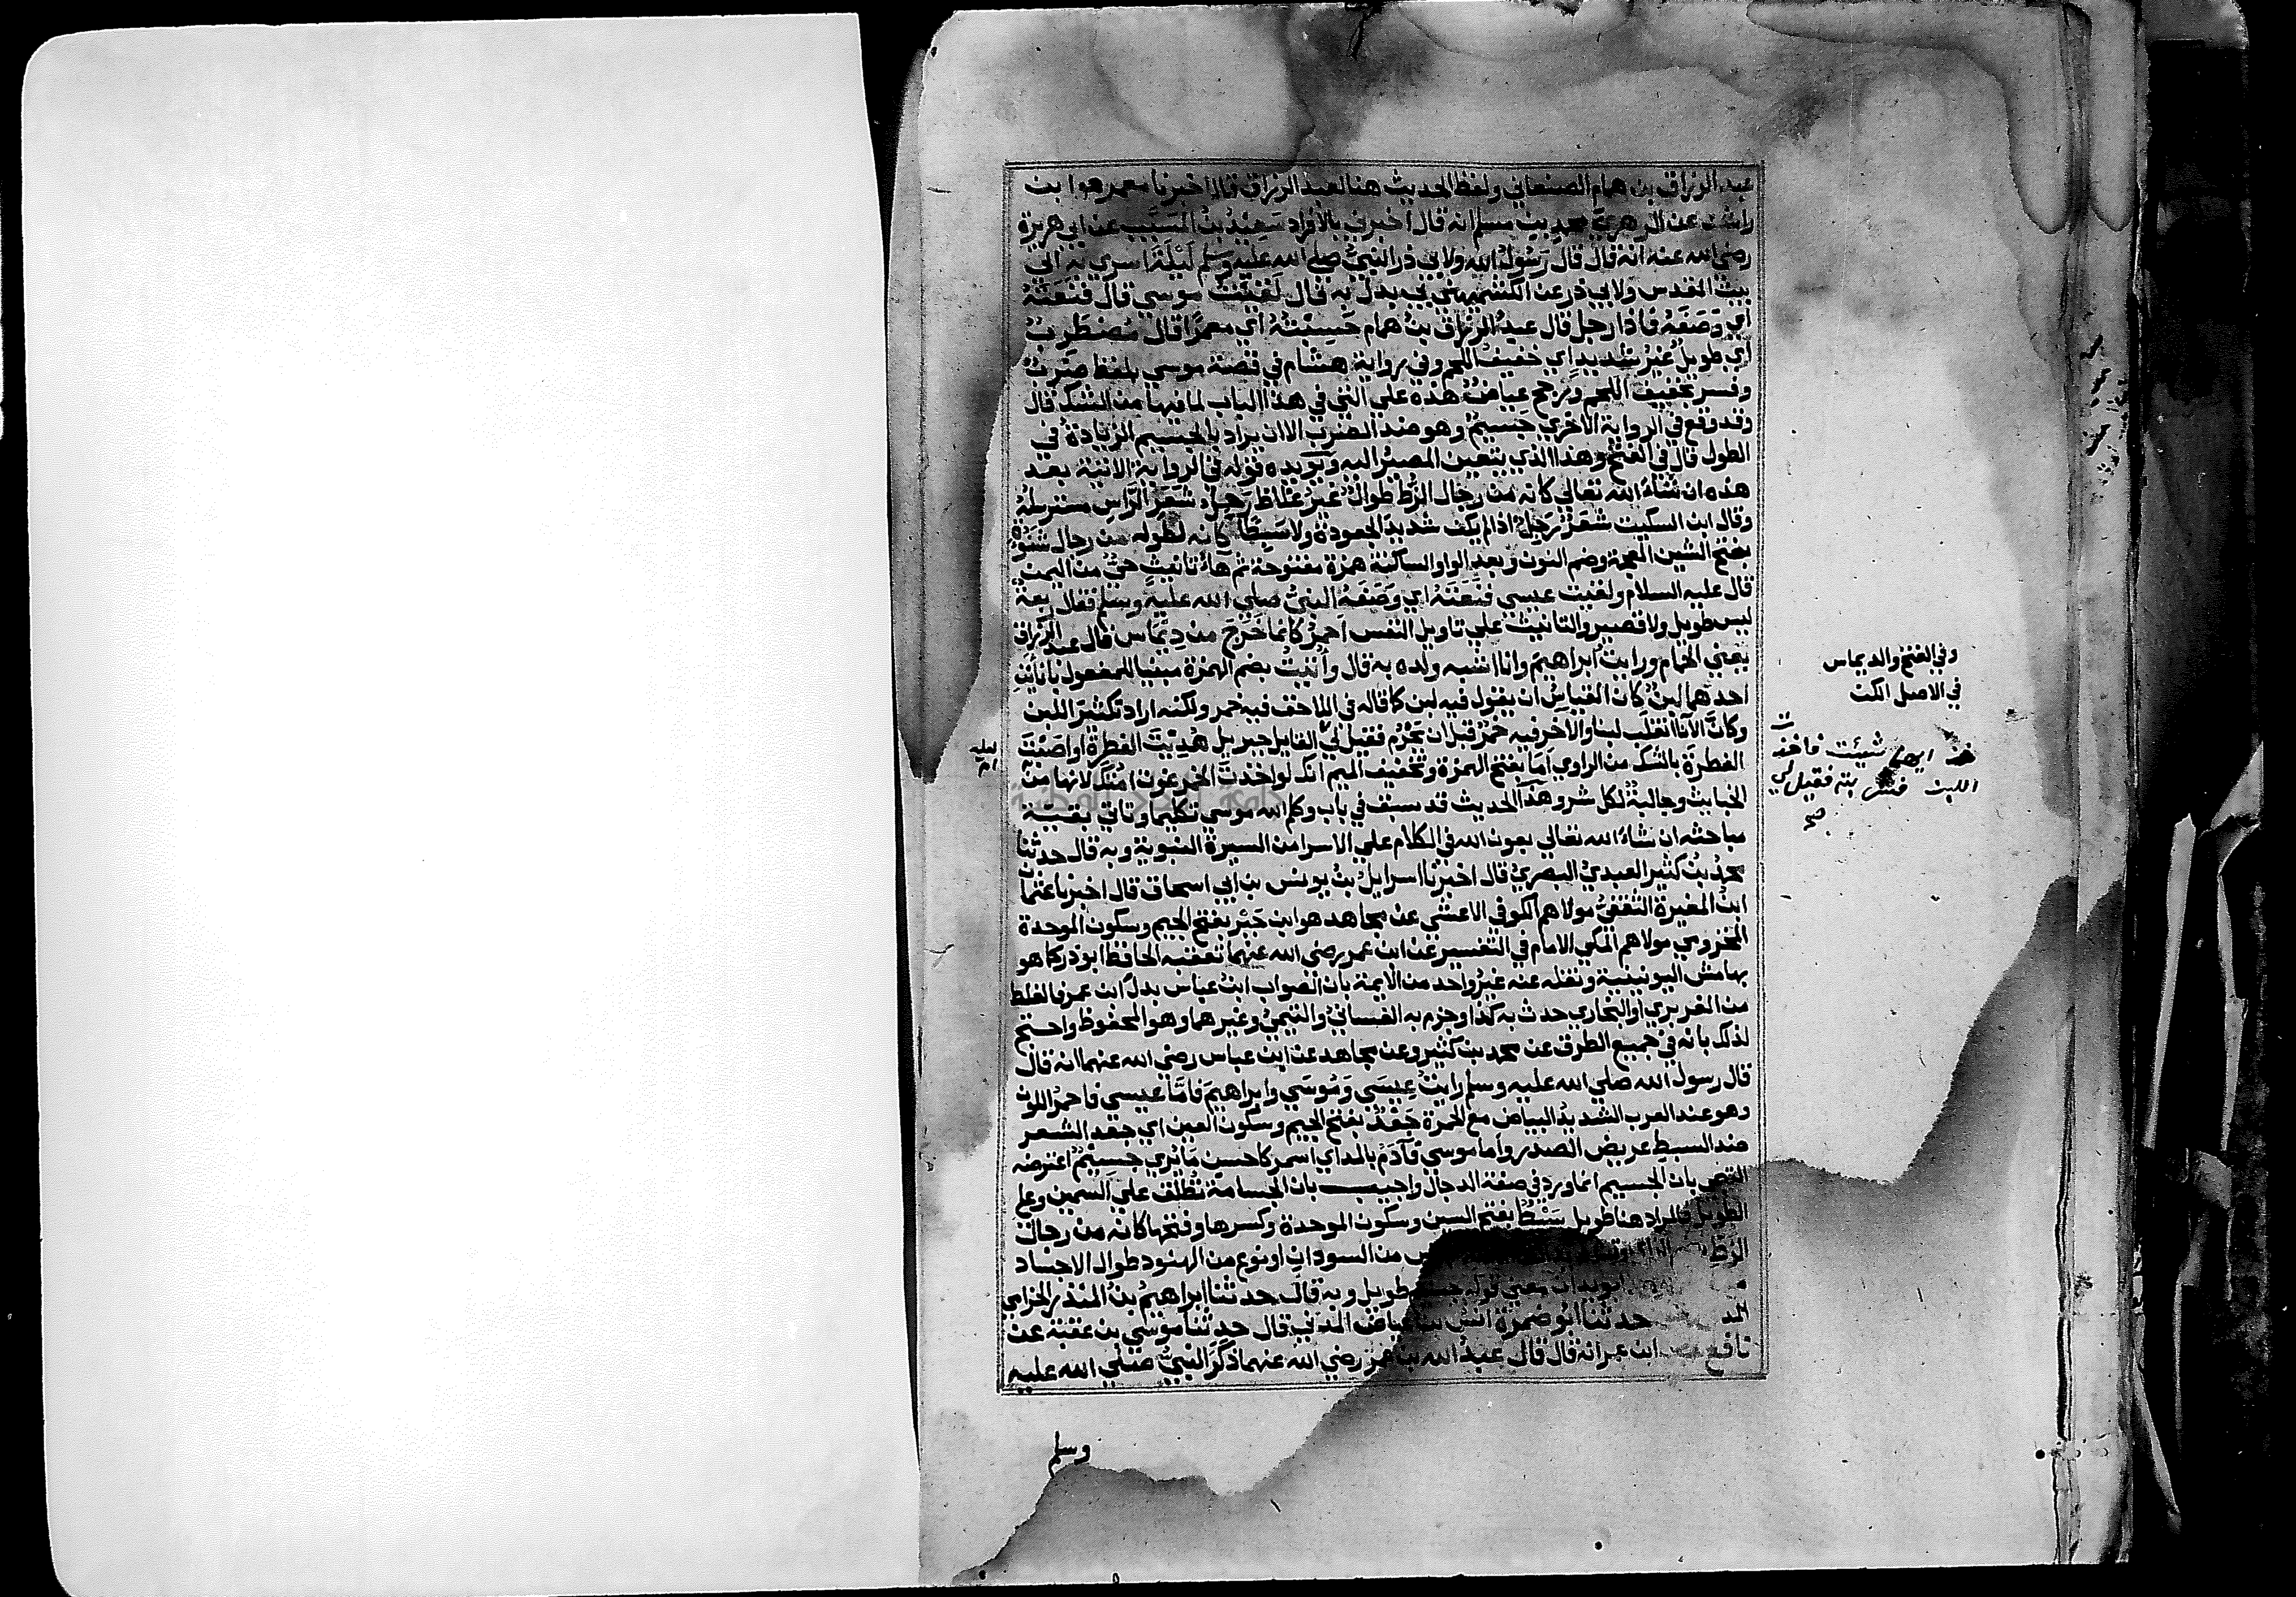 عبد الرزاق بن همام الصنعاني ولفظ الحديث هنا لعبد الرزاق قال اخبرنا معمر هو ابن
راشد عن الزهري محمد بن مسلم انه قال اخبرني بالافراد سَعِيْدُ بنُ المسَيَّبِ عن ابي هريرة
رضي الله عنه انه قال قال رَسُولُ الله ولابي ذر النبيُّ صلي الله عليه وسلم لَيْلَةَ اسري به الي
بيت المقدس ولابي ذر عن الكشميهني بي بدل به قال لَقِيْتُ موسي قال فنَعَتَهُ
اي وَصَفَهُ فاذا رجل قال عبدُ الرزاق بنُ همام حَسِبْتُهُ اي معمرًا قال مُضْطَرِبٌ
اي طويل غير شديد اي خفيف اللحم وفي رواية هشام في قصة موسي بلفظ ضَرْبٌ
وفسر بخفيف اللحم ورجح عياضٌ هذه علي التي في هذا الباب لما فيها من الشك قال
وقد وقع في الرواية الاخري جَسيمٌ وهو ضد الضرب الا ان يراد بالجسيم الزيادة في
الطول قال في الفتح وهذا الذي يتعين المصيْرُ اليه ويؤيده قوله في الرواية الاتية بعد
هذه ان شاءَ الله تعالي كانه من رجال الزُّط طوالٌ غيرُ غلاظ رَجِلُ شَعَرِ الرَّاسِ مسترسلُه
وقال ابن السكيت شَعَرٌ رَجِلٌ اذا لم يكن شديدَ الجعودة ولا سَبِطًا كانه لطوله من رجال شنوءة
بفتح الشين المعجمة وضم النون وبعد الواو الساكنة همزة مفتوحة ثم هاءُ تانيثٍ حيٌّ من اليمن
قال عليه السلام ولقيت عيسي فنَعَتَهُ اي وَصَفَهُ النبيُّ صلي الله عليه وسلم فقال رَبعةٌ
ليس طويل ولا قصير والتانيث علي تاويل النفس احمرُ كانما خَرَجَ من دِيْمَاس قال عبد الرزاق
يعني الحمام ورايتُ ابراهيمَ وانا اشبه ولده به قال وأُتِيْتُ بضم الهمزة مبنيا للمفعول بانائَيْنِ
احدهما لبنٌ كان القياسُ ان يقول فيه لبن كما قاله في اللاحق فيه خمر ولكنه اراد تكثيرَ اللبن
وكانَّ الانا انقلَب لبنا والاخر فيه خمرٌ قبل ان تحرُم فقيل لي القايل جبريل هُدِيْتَ الفطرةَ او اَصَبْتَ
الفطرةَ بالشك من الراوي اَمَا بفتح الهمزة وتخفيف الميم انك لو اخذتَ الخمر غوت امتك لانها من
الخبايث وجالبةٌ لكل شر وهذا الحديث قد سبق في باب وكلم الله موسي تكليما وتاتي بقية
مباحثه ان شاءَ الله تعالي بعون الله في الكلام علي الاسرا من السيرة النبوية وبه قال حدثنا
محمدُ بنُ كثير العبديُّ البصريُّ قال اخبرنا اسرايلُ بنُ يونس بن ابي اسحاق قال اخبرنا عثمان
ابن المغيرة الثقفيُّ مولاهم الكوفي الاعشي عن مجاهد هو ابن جَبْر بفتح الجيم وسكون الموحدة
المخزومي مولاهم المكي الامام في التفسير عن ابن عمر رضي الله عنهما تعقبه الحافظ ابو ذر كما هو
بهامش اليونينية ونقله عنه غيرُ واحد من الايمة بان الصواب ابنُ عباس بدل ابن عمر فالغلط
من الفربري او البخاري حدث به كذا وجزم به الغسانيُّ والتيميُّ وغيرهما وهو المحفوظ واحتج
لذلك بانه في جميع الطرق عن محمد بن كثير وعن مجاهد عن ابن عباس رضي الله عنهما انه قال
قال رسول الله صلي الله عليه وسلم رايتُ عِيسَي ومُوسَي وابراهيمَ فامَّا عيسي فاحمرُ اللون
وهو عند العرب الشديدُ البياض مع الحمرة جَعْدٌ بفتح الجيم وسكون العين اي جعد الشعر
ضد السبط عريض الصدر واما موسي فآدَمُ بالمد اي اسمر كاحسن مَا يُري جَسِيْمٌ اعترضه
التيمي بان الجسيم انما ورد في صفة الدجال واجيب بان الجسامة تُطْلَق علي السمين وعلي
الطويل فالمراد هنا طويل سَبْطٌ بفتح السين وسكون الموحدة وكسرها وفتحها كانه من رجال
الزُّطِّ من السودان او نوع من الهنود طوال الاجساد
يؤيد ان معني قوله جسيم طويل وبه قال حدثنا ابراهيمُ بنُ المنذر الحزامي
حدثنا ابُو ضمرة انسُ بنُ عياض المدني قال حدثنا موسي بن عقبة عن
نافع ابن عمر انه قال قال عبدُ الله بنُ عمرَ رضي الله عنهما ذَكَرَ النبيُّ صلي الله عليه
وسلم
وفي الفتح والديماس
في الاصل الكن
خذ ايهما شيئت فاخذت
اللبن فشربته فقيل لي
صح